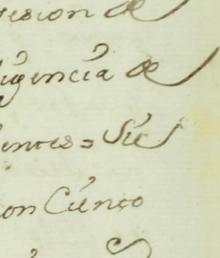 esion de
igencia de
entes = Sie
on Ciento